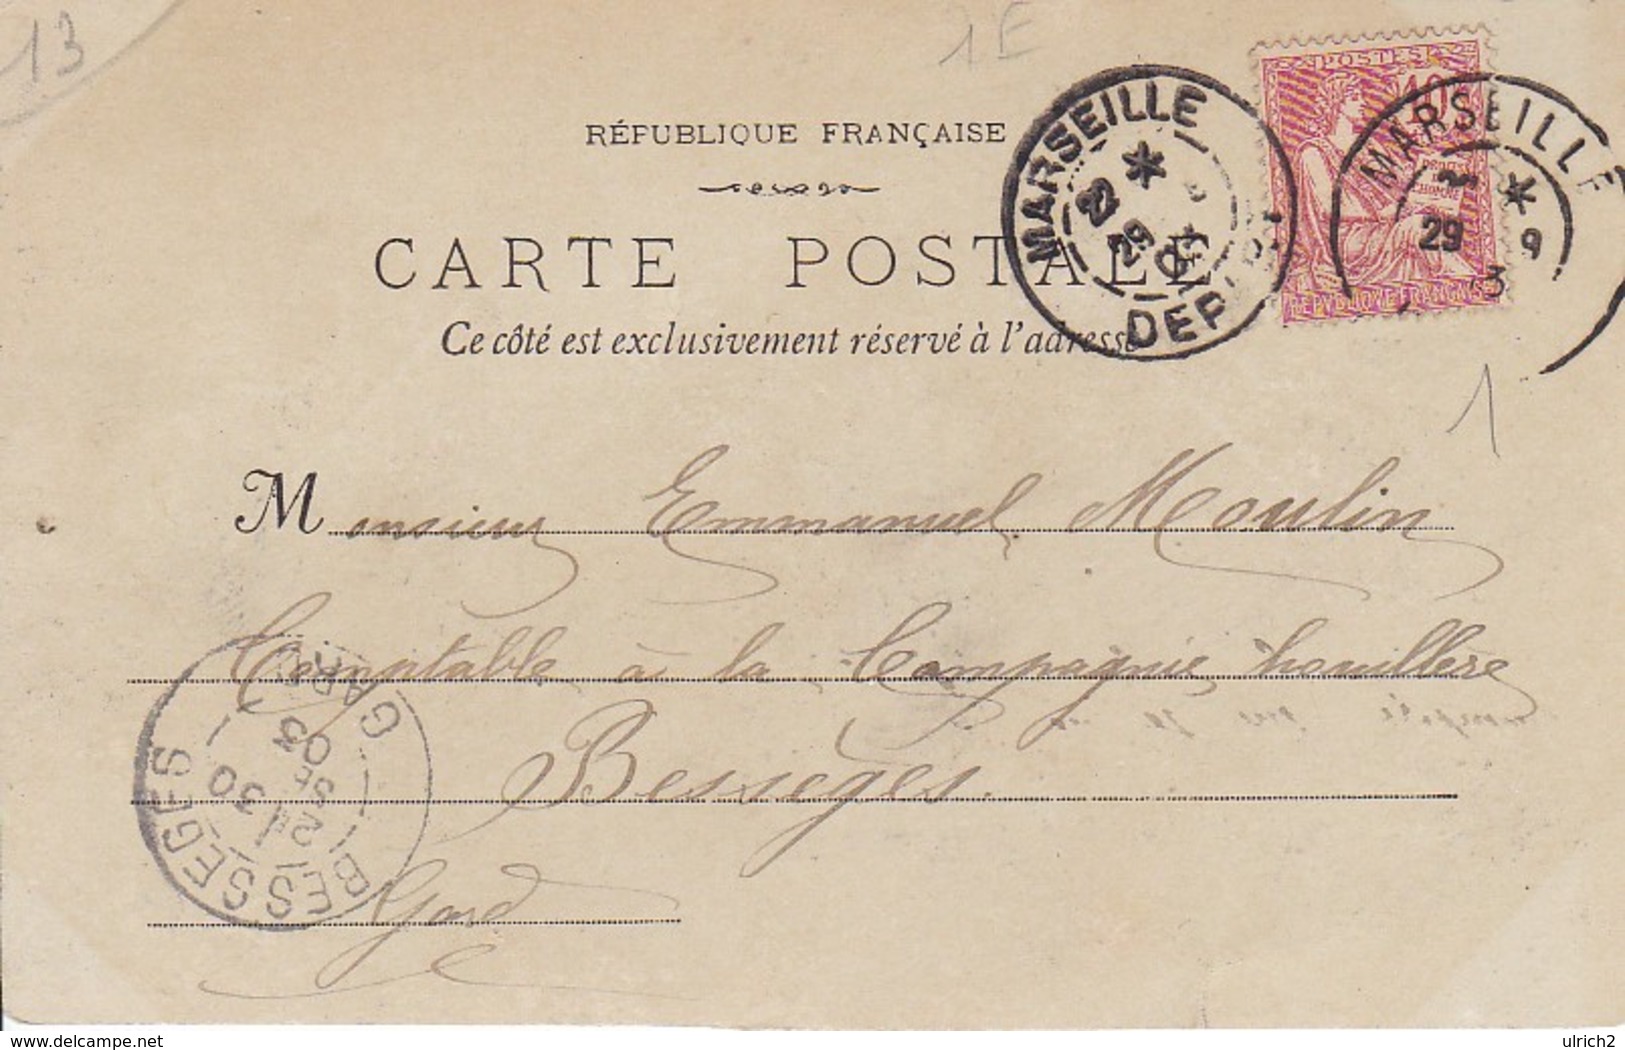 13
1E
RÉPUBLIQUE FRANÇAISE
CARTE POSTALE
Ce côté est exclusivement réservé à l'adresse
MARSEILLE
29
DEP
POSTES
10
DROITS
DE
L'HOMME
REPVBLIQVE FRANÇAISE
MARSEILLE
29 9
3
1
Monsieur Emmanuel Moulin
Comptable à la Compagnie houillère
Bessèges.
Gard
BESSEGES
GARD
30
SE
03
www.delcampe.net
ulrich2